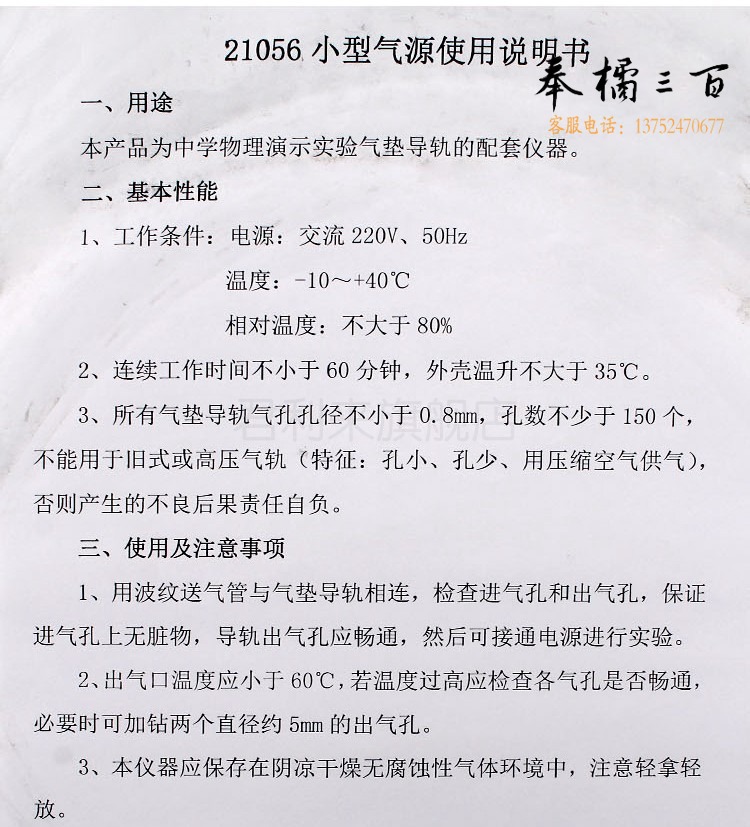 21056 小型气源使用说明书
奉橘三百
客服电话：13752470677
一、用途
本产品为中学物理演示实验气垫导轨的配套仪器。
二、基本性能
1、工作条件：电源：交流 220V、50Hz
温度：-10～+40℃
相对温度：不大于 80%
2、连续工作时间不小于 60 分钟，外壳温升不大于 35℃。
3、所有气垫导轨气孔孔径不小于 0.8mm，孔数不少于 150 个，
君利来旗舰店
不能用于旧式或高压气轨（特征：孔小、孔少、用压缩空气供气），
否则产生的不良后果责任自负。
三、使用及注意事项
1、用波纹送气管与气垫导轨相连，检查进气孔和出气孔，保证
进气孔上无脏物，导轨出气孔应畅通，然后可接通电源进行实验。
2、出气口温度应小于 60℃，若温度过高应检查各气孔是否畅通，
必要时可加钻两个直径约 5mm 的出气孔。
3、本仪器应保存在阴凉干燥无腐蚀性气体环境中，注意轻拿轻
放。